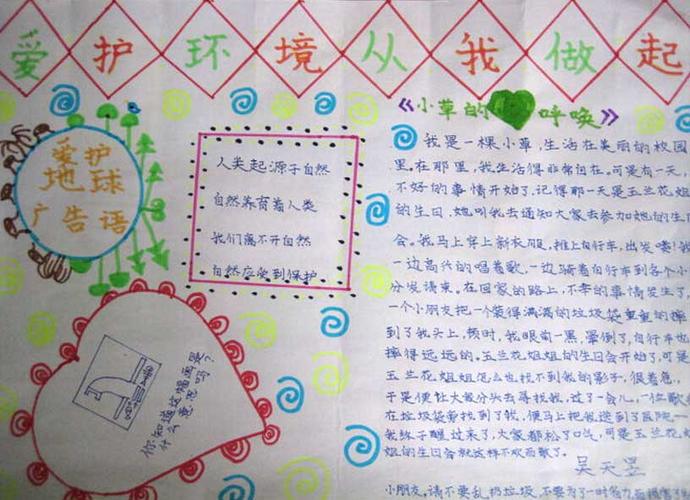 爱护环境从我做起
爱护
地球
广告语
人类起源于自然
自然养育着人类
我们离不开自然
自然应受到保护
你知道这幅画是
什么意思吗？
《小草的呼唤》
我是一棵小草，生活在美丽的校园
里。在那里，我生活得非常自在。可是有一天，
不好的事情开始了，记得那一天是玉兰花姐
的生日，她叫我去通知大家去参加她的生日
会。我马上穿上新衣服，推上自行车，出发喽！我
一边高兴的唱着歌，一边骑着自行车到各个小
分发请柬。在回家的路上，不幸的事情发生了，
一个小朋友把一个装得满满的垃圾袋重重的摔
到了我头上，顿时，我眼前一黑，晕倒了，自行车也
摔得远远的，玉兰花姐姐的生日会开始了，可是
玉兰花姐姐怎么也找不到我的影子，很着急，
于是便让大家分头去寻找我，过了一会儿，一位
在垃圾袋旁找到了我，便马上把我送到了医院
我终于醒过来了，大家都松了口气，可是玉兰花
姐的生日会就这样不欢而散了。
吴天昱
小朋友，请不要乱扔垃圾，不要为了一时